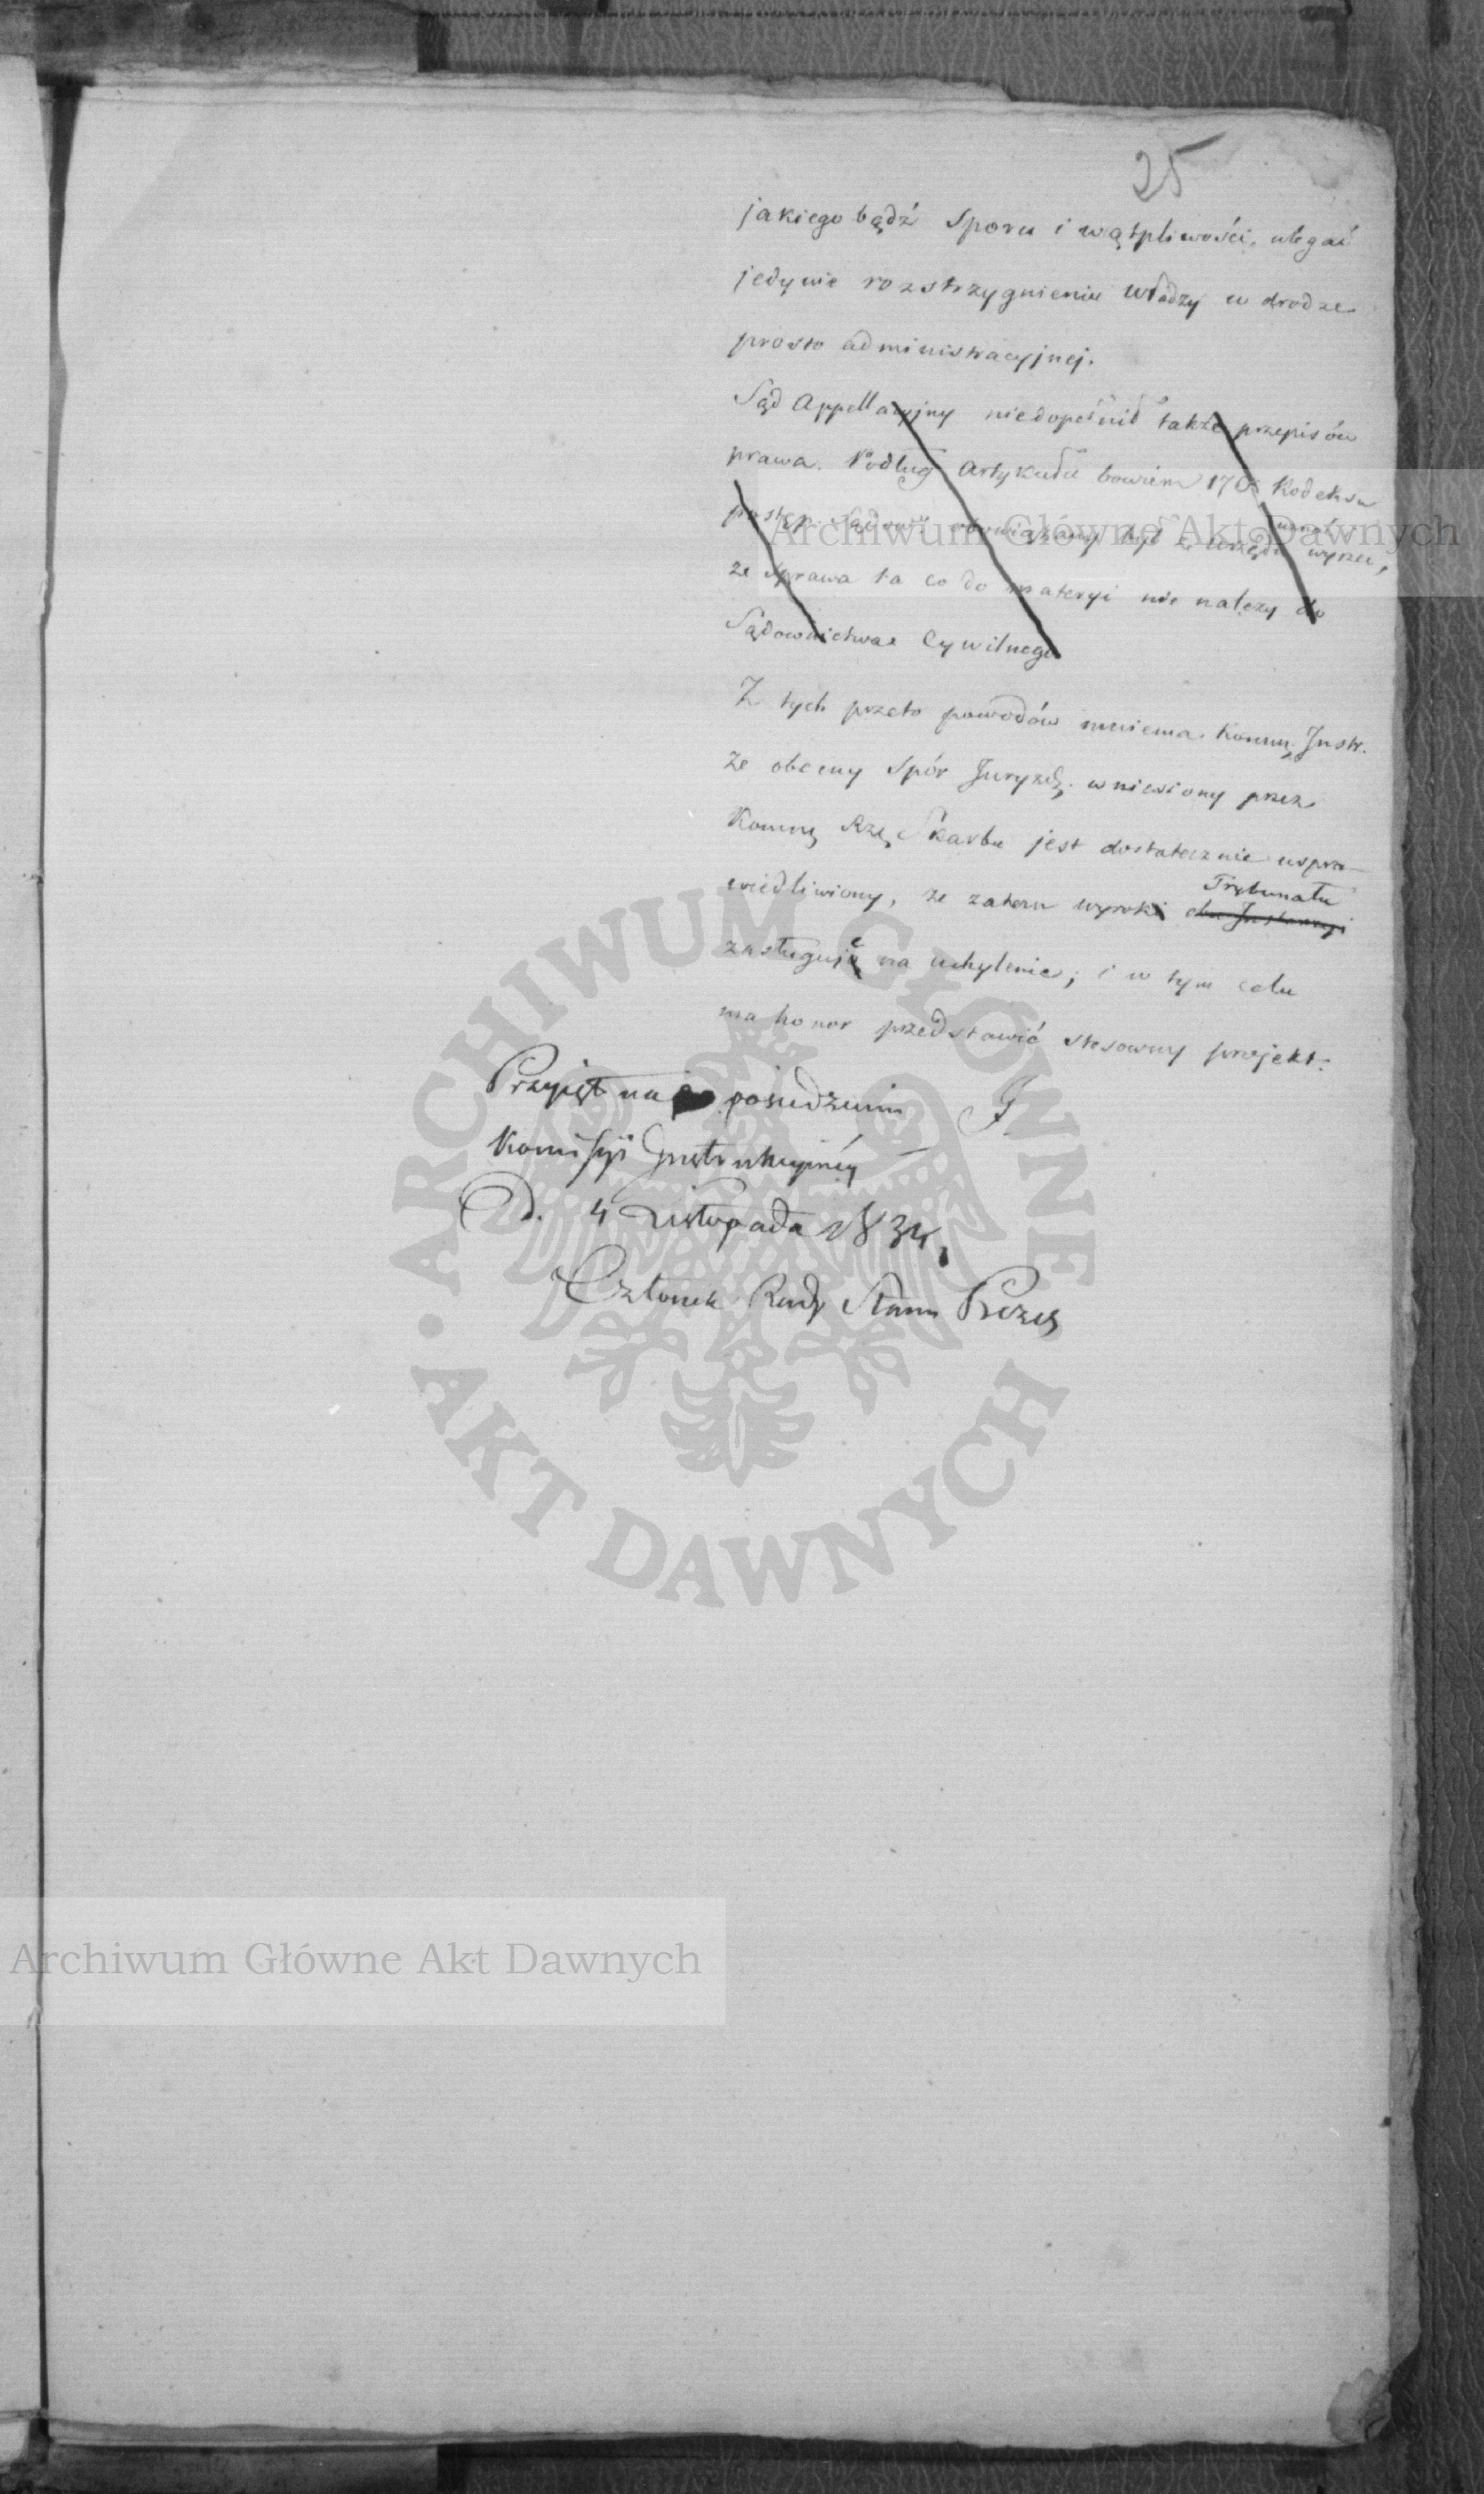 25
jakiego bądź Sporu i wątpliwości, ulegać
jedynie rozstrzygnieniu Władzy w drodze
prosto administracyjnej.
Sąd Appellacyjny niedopełnił także przepisów
prawa. Podług Artykułu bowiem 170 Kodeksu
postęp. Sądow: obowiązany był z Urzędu wyrzec,
że Sprawa ta co do materyi nie należy do
Sądownictwa Cywilnego
Z tych przeto powodów mniema Komm. Instr.
że obecny Spór Juryzd. wniesiony przez
Kommę Rzą Skarbu jest dostatecznie uspra-
wiedliwiony, że zatem wyrok Trybunału
obu Instancyi
zasługuje na uchylenie; i w tym celu
ma honor przedstawić stosowny projekt.
Przyjęt na posiedzeniu
Komissyi Instrukcyjnéy
D. 4 Listopada 1834.
Członek Rady Stanu Prezes
Archiwum Główne Akt Dawnych
ARCHIWUM GŁÓWNE
AKT DAWNYCH
Archiwum Główne Akt Dawnych